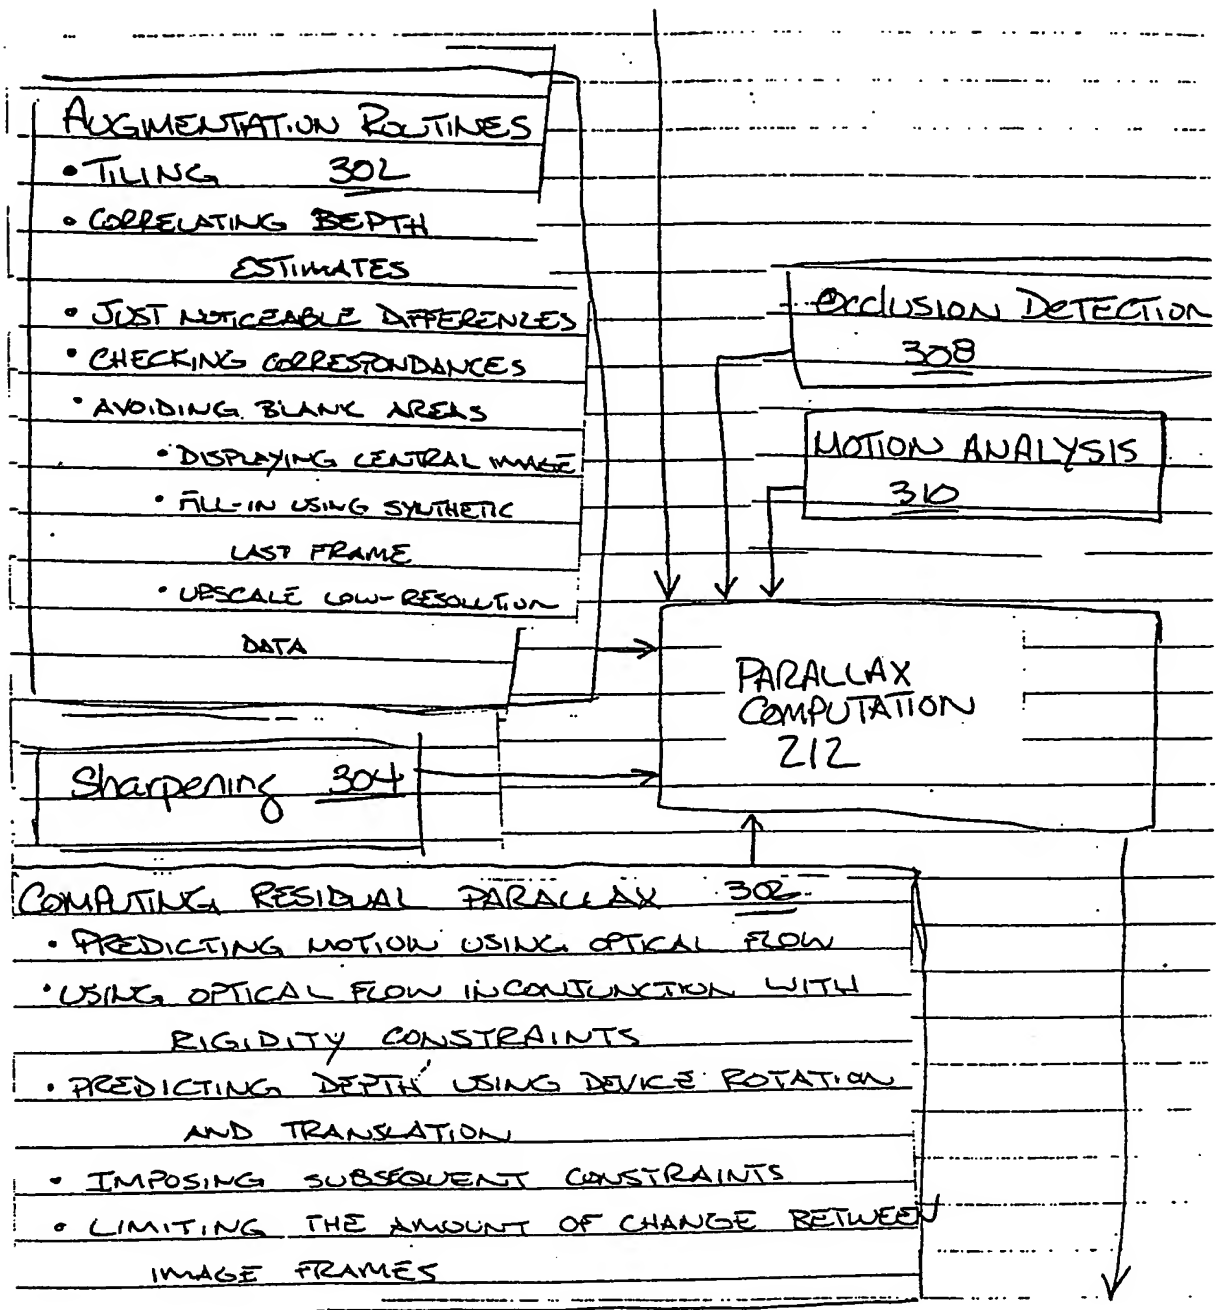 AUGMENTATION ROUTINES
• TILING 302
• CORRELATING BEPTH
ESTIMATES
• JUST NOTICEABLE DIFFERENCES
• CHECKING CORRESPONDANCES
• AVOIDING BLANK AREAS
• DISPLAYING CENTRAL IMAGE
• FILL-IN USING SYNTHETIC
LAST FRAME
• UPSCALE LOW-RESOLUTION
DATA
OCClUSION DETECTION
308
MOTION ANALYSIS
310
PARALLAX
COMPUTATION
212
Sharpening 304
COMPUTING RESIDUAL PARALLAX 302
• PREDICTING MOTION USING OPTICAL FLOW
• USING OPTICAL FLOW IN CONJUNCTION WITH
RIGIDITY CONSTRAINTS
• PREDICTING DEPTH USING DEVICE ROTATION
AND TRANSLATION
• IMPOSING SUBSEQUENT CONSTRAINTS
• LIMITING THE AMOUNT OF CHANGE BETWEEN
IMAGE FRAMES